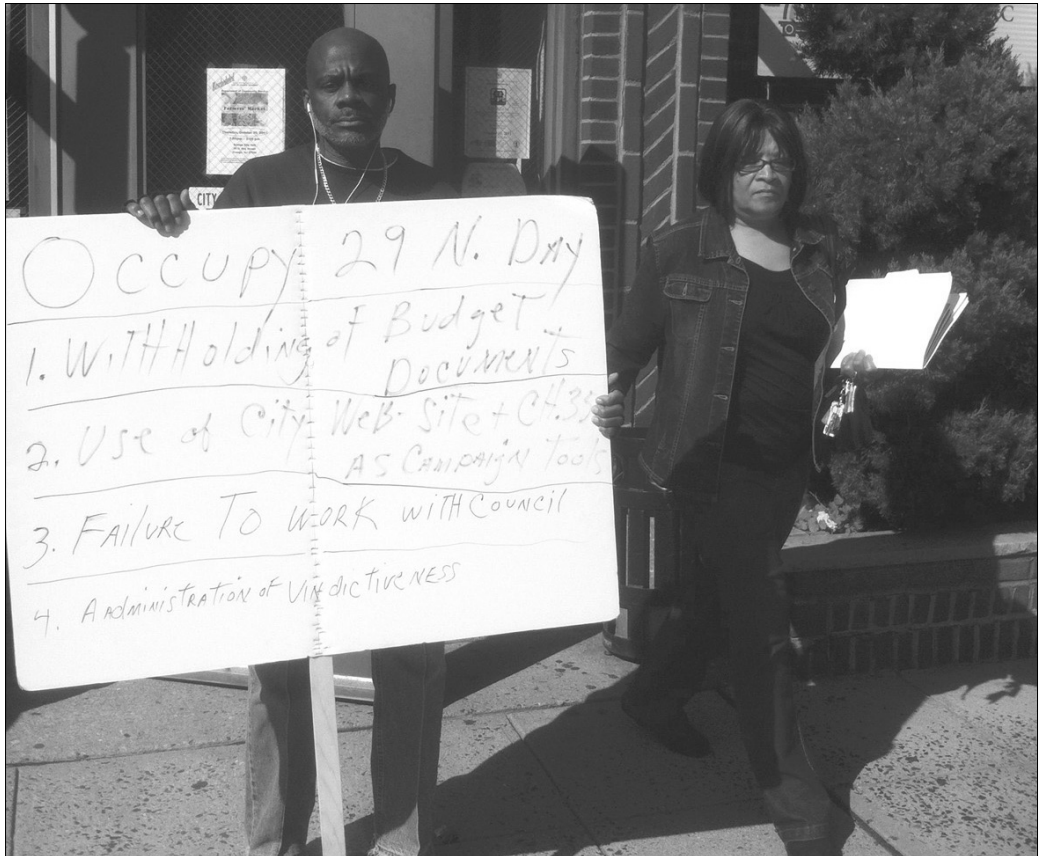 CITY
Occupy 29 N. DAY
1. WITHHolding of Budget
Documents
2. Use of City Web Site + CH.
As CAMPAIGN Tools
3. FAILURE TO WORK WITH COUNCIL
4. AADMINISTRATION OF VINDICTIVENESS